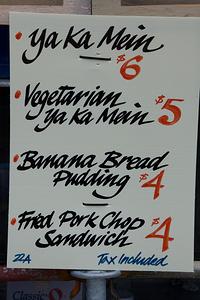 • Ya Ka Mein
$6
• Vegetarian
Ya Ka Mein $5
• Banana Bread
Pudding $4
• Fried Pork Chop
Sandwich $4
Tax Included
Classics